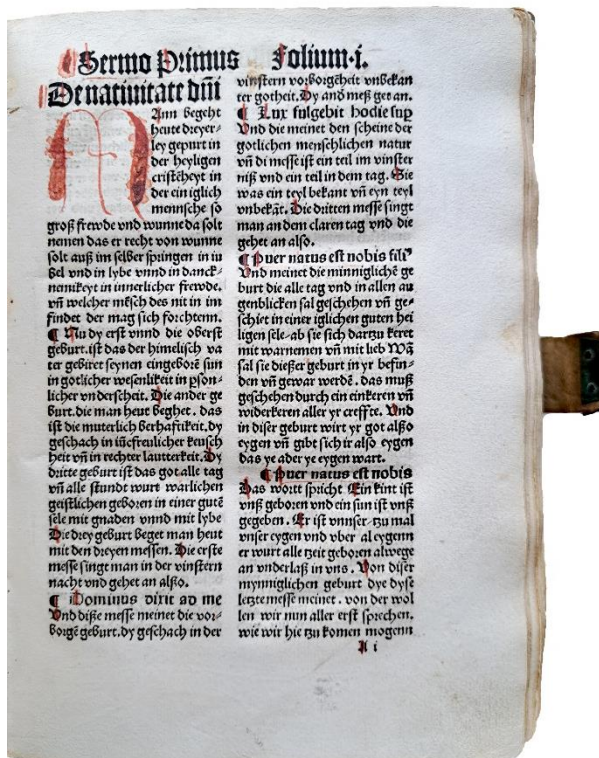 Sermo Primus Folium·i.
De natiuitate dñi
MAnn begeht
heute dreyer⸗
ley gepurt in
der heyligen
cristēheyt in
der ein iglich
mennsche so
groß frewde vnd wunne da solt
nemen das er recht von wunne
solt auß im selber springen in iu
bel vnd in lybe vnnd in danck⸗
nemikeyt in innerlicher frewde.
vñ welcher mēsch des nit in im
findet der mag sich forchtenn.
¶ Nu dy erst vnnd die oberst
geburt.ist das der himelisch va
ter gebiret seynen eingeborē sun
in gotlicher wesenlikeit in pson⸗
licher vnderscheit. Die ander ge
burt.die man heut beghet. das
ist die muterlich berhaftikeit.dy
geschach in iūcfreulicher keusch
heit vñ in rechter lautterkeit. Dy
dritte geburt ist das got alle tag
vñ alle stundt wurt warlichen
geistlichen geboren in einer gutē
sele mit gnaden vnnd mit lybe
Die drey geburt beget man heut
mit den dreyen messen. Die erste
messe singt man in der vinstern
nacht vnd gehet an alßo.
¶ Dominus dixit ad me
Vnd diße messe meinet die vor⸗
borgē geburt.dy geschach in der
vinstern vorborgēheit vnbekan
ter gotheit. Dy and meß get an.
¶ Lux fulgebit hodie sup
Vnd die meinet den scheine der
gotlichen menschlichen natur
vñ di messe ist ein teil im vinster
niß vnd ein teil in dem tag. Sie
was ein teyl bekant vñ eyn teyl
vnbekāt. Die dritten messe singt
man an dem claren tag vnd die
gehet an also.
¶ Puer natus est nobis fili⁹
Vnd meinet die minniglichē ge
burt die alle tag vnd in allen au
genblicken sal geschehen vñ ge⸗
schiet in einer iglichen guten hei
ligen sele. ab sie sich dartzu keret
mit warnemen vñ mit lieb Wā
sal sie dießer geburt in yr befin⸗
den vñ gewar werdē. das muß
geschehen durch ein einkeren vñ
widerkeren aller yr creffte. Vnd
in diser geburt wirt yr got alßo
eygen vñ gibt sich ir also eygen
das ye ader ye eygen wart.
¶ Puer natus est nobis
Das wortt spricht Ein kint ist
vnß geboren vnd ein sun ist vnß
gegeben. Er ist vnnser tzu mal
vnser eygen vnd vber al eygenn
er wurt alle tzeit geboren alwege
an vnderlaß in vns. Von diser
mynniglichen geburt dye dyse
letzte messe meinet. von der wol
len wir nun aller erst sprechen.
wie wir hie tzu komen mogenn
A i